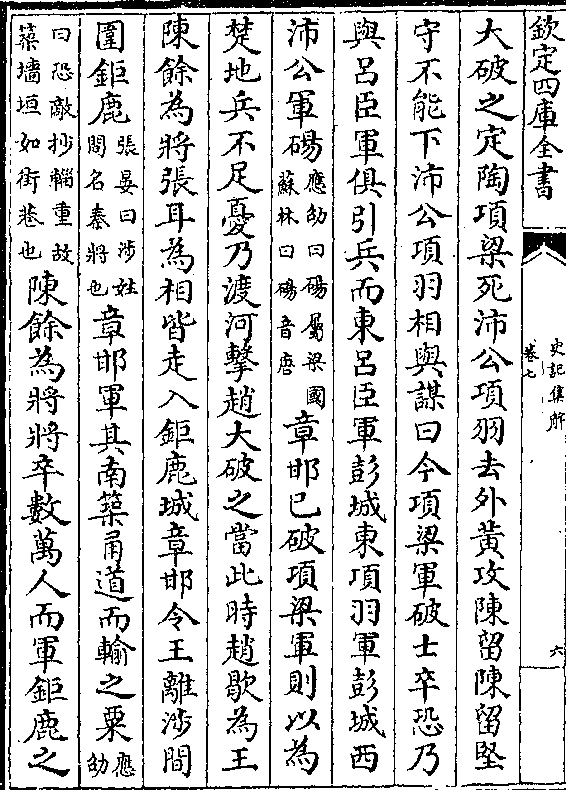 欽定四庫全書
史記集解
卷七
六
大破之定陶項梁死沛公項羽去外黃攻陳留陳留堅
守不能下沛公項羽相與謀曰今項梁軍破士卒恐乃
與呂臣軍俱引兵而東呂臣軍彭城東項羽軍彭城西
沛公軍碭應劭曰碭屬梁國蘇林曰碭音唐章邯已破項梁軍則以為
楚地兵不足憂乃渡河擊趙大破之當此時趙歇為王
陳餘為將張耳為相皆走入鉅鹿城章邯令王離涉間
圍鉅鹿張晏曰涉姓間名秦將也章邯軍其南築甬道而輸之粟應劭
曰恐敵抄輜重故築墻垣如街巷也陳餘為將將卒數萬人而軍鉅鹿之